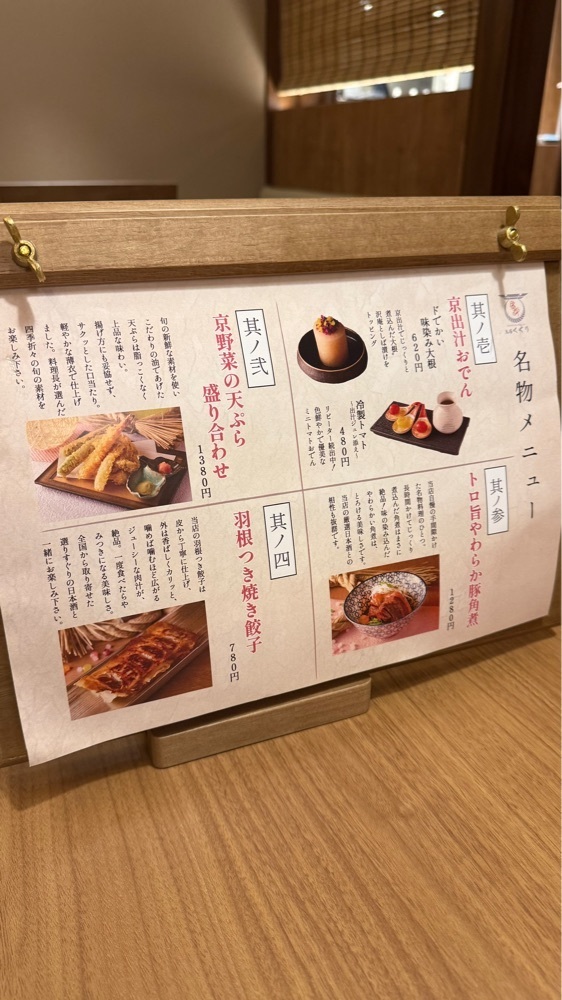 名物メニュー
其ノ壱
京出汁おでん
ドでかい
味染み大根
620円
京出汁でじっくりと
煮込んだ大根。
沢庵としば漬けを
トッピング
冷製トマト
~出汁ジュレ添え~
480円
リピーター続出中!
色鮮やかで優美な
ミニトマトおでん
其ノ弐
京野菜の天ぷら
盛り合わせ
1380円
旬の新鮮な素材を使い
こだわりの油であげた
天ぷらは脂っこくなく
上品な味わい。
揚げ方にも妥協せず、
サクッとした口当たり。
軽やかな薄衣で仕上げ
ました。料理長が選んだ
四季折々の旬の素材を
お楽しみ下さい。
其ノ参
トロ旨やわらか豚角煮
1280円
当店自慢の手間暇かけ
た名物料理のひとつ。
長時間かけてじっくり
煮込んだ角煮はまさに
絶品!味の染み込んだ
やわらかい角煮は、
とろける美味しさです。
当店の厳選日本酒との
相性も抜群です。
其ノ四
羽根つき焼き餃子
780円
当店の羽根つき餃子は
皮から丁寧に仕上げ、
外は香ばしくカリッと、
噛めば噛むほど広がる
ジューシーな肉汁が、
絶品。一度食べたらや
みつきになる美味しさ。
全国から取り寄せた
選りすぐりの日本酒と
一緒にお楽しみ下さい。